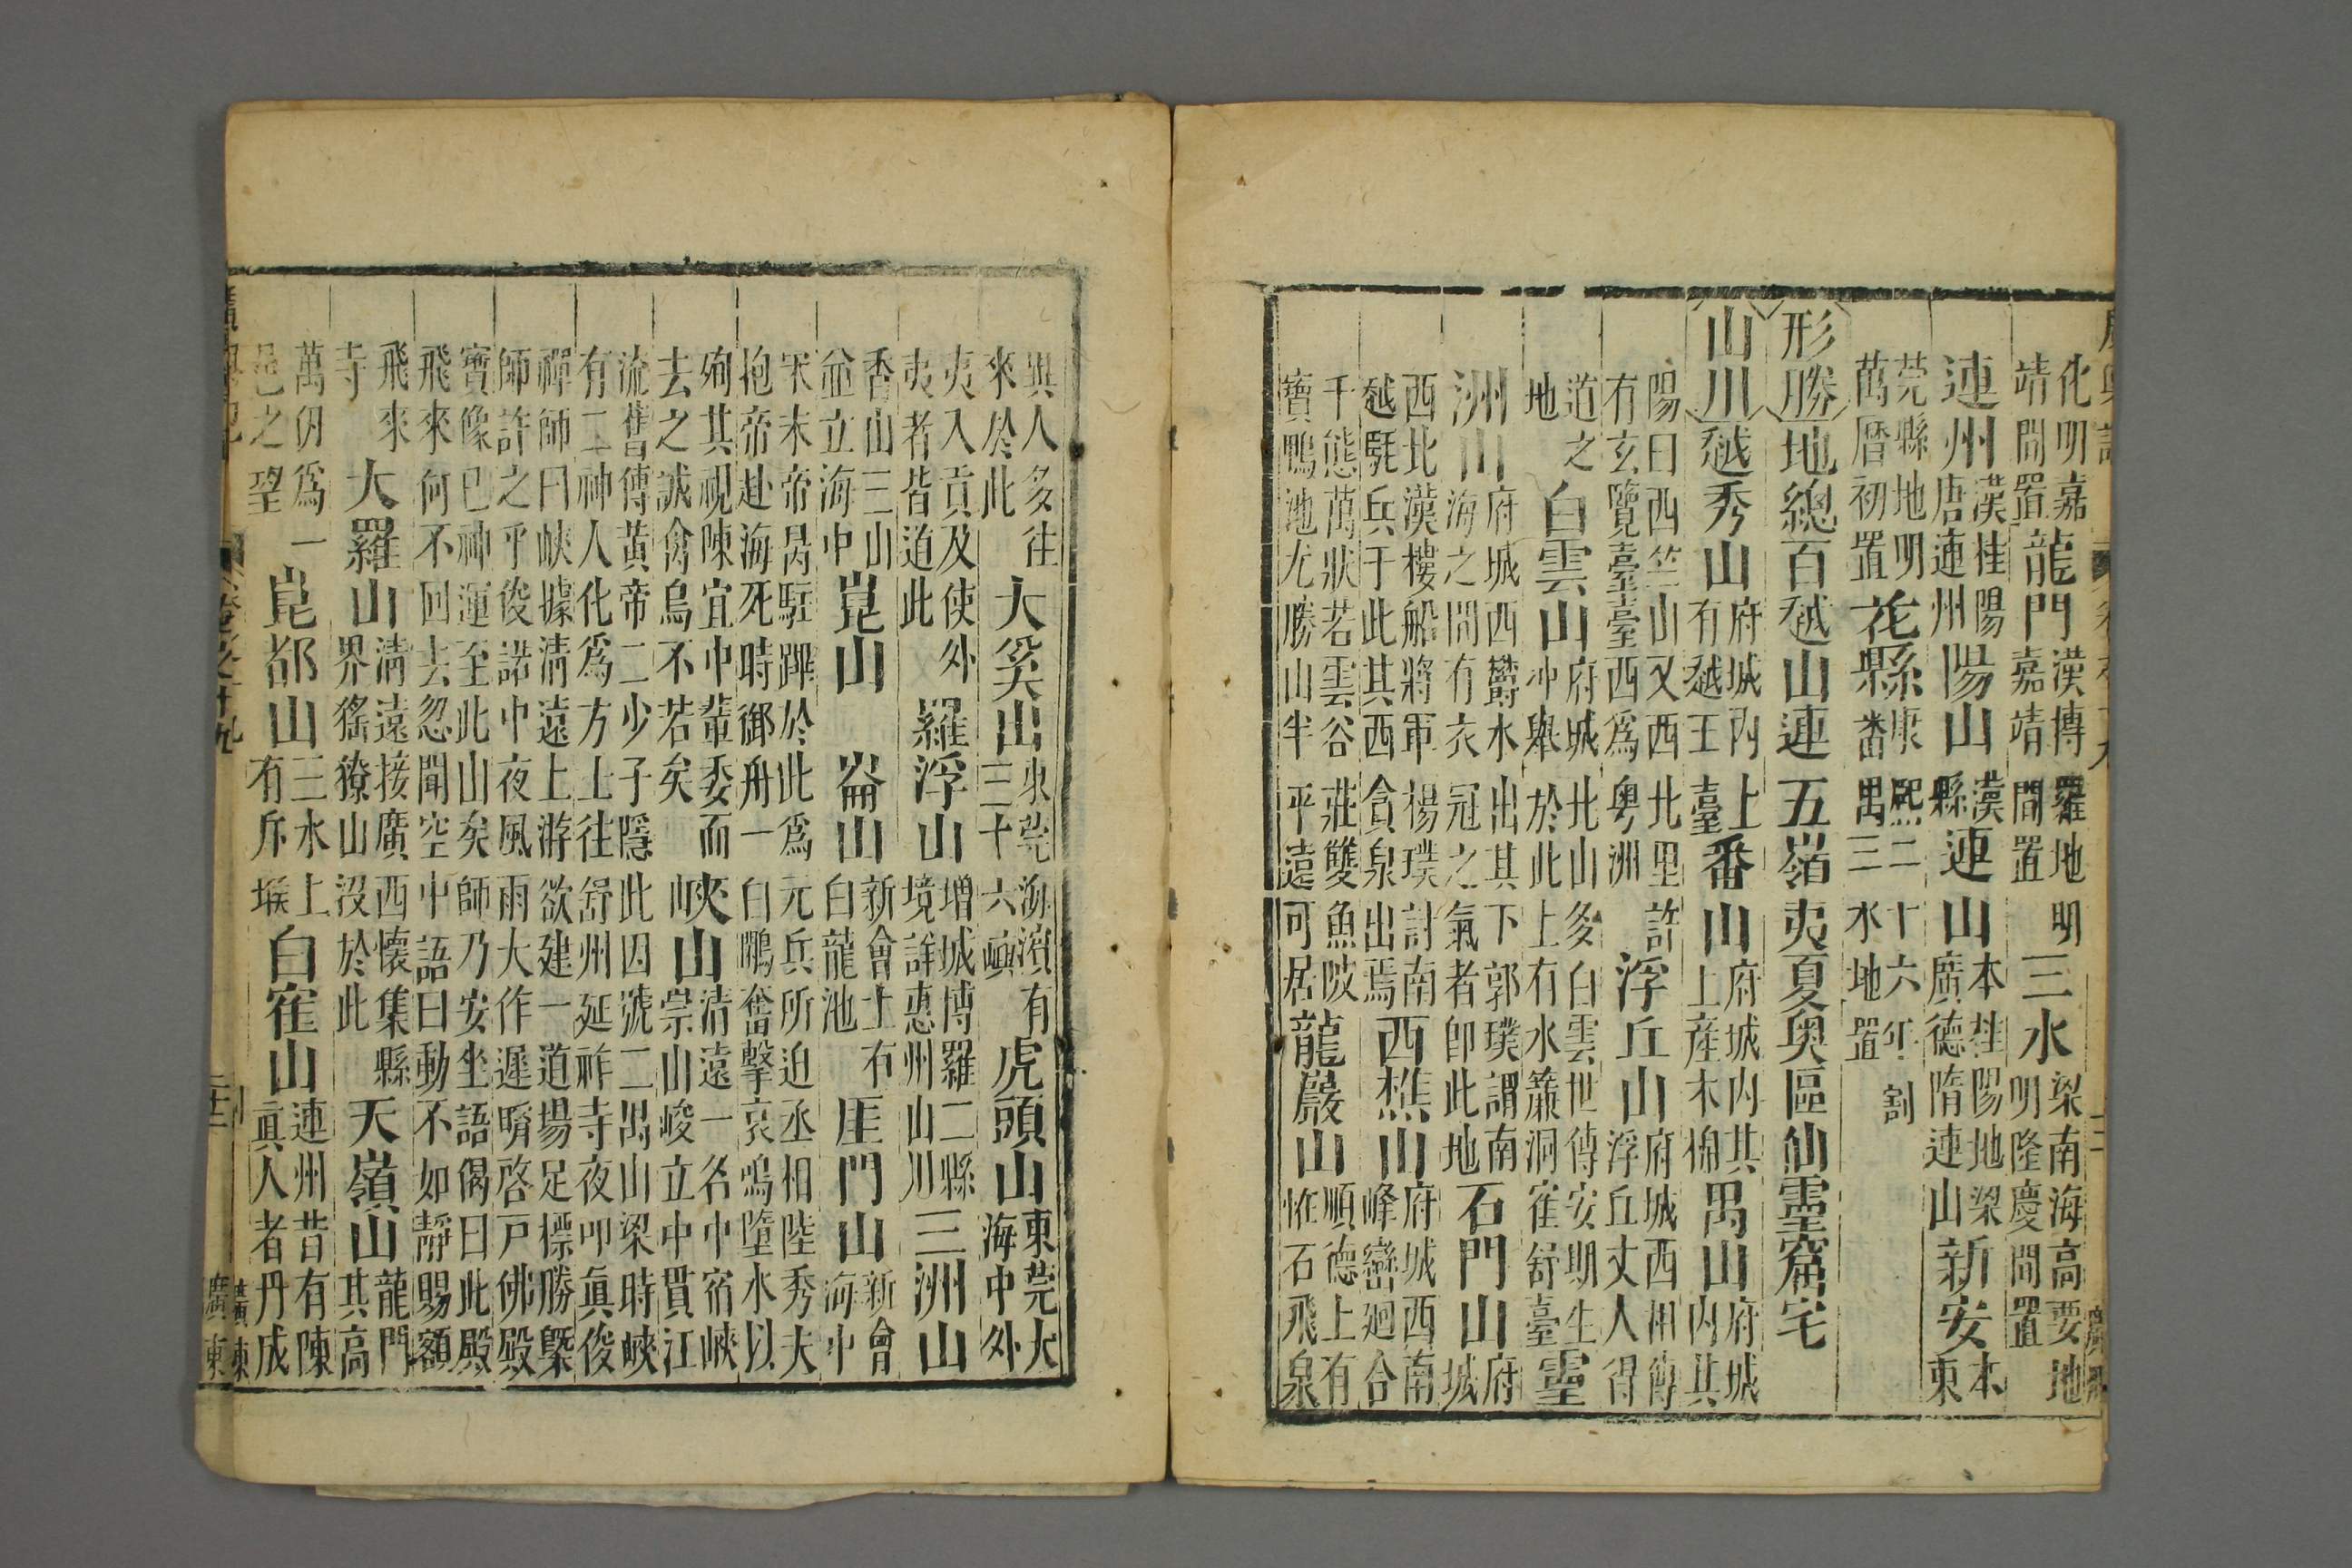 化明嘉
靖間置
龍門
漢博羅地明
嘉靖間置
三水
梁南海高要地
明隆慶間置
連州
漢桂陽
唐連州
陽山
漢
縣
連山
本桂陽地梁
廣德隋連山
新安
本
東
莞縣地明
萬曆初置
花縣
康熙二十六年割
番禺三水地置
形勝
地總百越山連五嶺夷夏奧區仙靈窟宅
山川
越秀山
府城內上
有越王臺
番山
府城內其
上產木棉
禺山
府城
內其
陽曰西竺山又西北里許
有玄覽臺臺西爲粵洲
浮丘山
府城西相傳
浮丘丈人得
道之
地
白雲山
府城北山多白雲世傳安期生
沖舉於此上有水簾洞隺舒臺
靈
洲山
府城西鬱水出其下郭璞謂南
海之間有衣冠之氣者卽此地
石門山
府
城
西北漢樓船將軍楊璞討南
越駐兵于此其西貪泉出焉
西樵山
府城西南
峰巒廻合
千態萬狀若雲谷莊雙魚陂
寶鴨池尤勝山半平遠可居
龍巖山
順德上有
恠石飛泉
與人多往
來於此
大奚山
東莞海濱有
三十六嶼
虎頭山
東莞大
海中外
夷入貢及使外
夷者皆道此
羅浮山
增城博羅二縣
境詳惠州山川
三洲山
香山三山
並立海中
崑山
崙山
新會上有
白龍池
厓門山
新會
海中
宋末帝昺駐蹕於此爲元兵所迫丞相陸秀夫
抱帝赴海死時御舟一白鷴奮擊哀鳴墮水以
殉其視陳宜中輩委而
去之誠禽鳥不若矣
峽山
清遠一名中宿峽
崇山峻立中貫江
流舊傳黃帝二少子隱此因號二禺山梁時峽
有二神人化爲方士往舒州延祚寺夜叩真俊
禪師曰峽據清遠上游欲建一道場足標勝槩
師許之乎俊諾中夜風雨大作遲明啓戶佛殿
寶像已神運至此山矣師乃安坐語偈曰此殿
飛來何不回去忽聞空中語曰動不如靜賜額
飛來
寺
大羅山
清遠接廣西懷集縣
界猺獠山沒於此
天嶺山
龍門
其高
萬仞爲一
邑之望
崑都山
三水上
有斥堠
白隺山
連州昔有陳
眞人者丹成
廣東